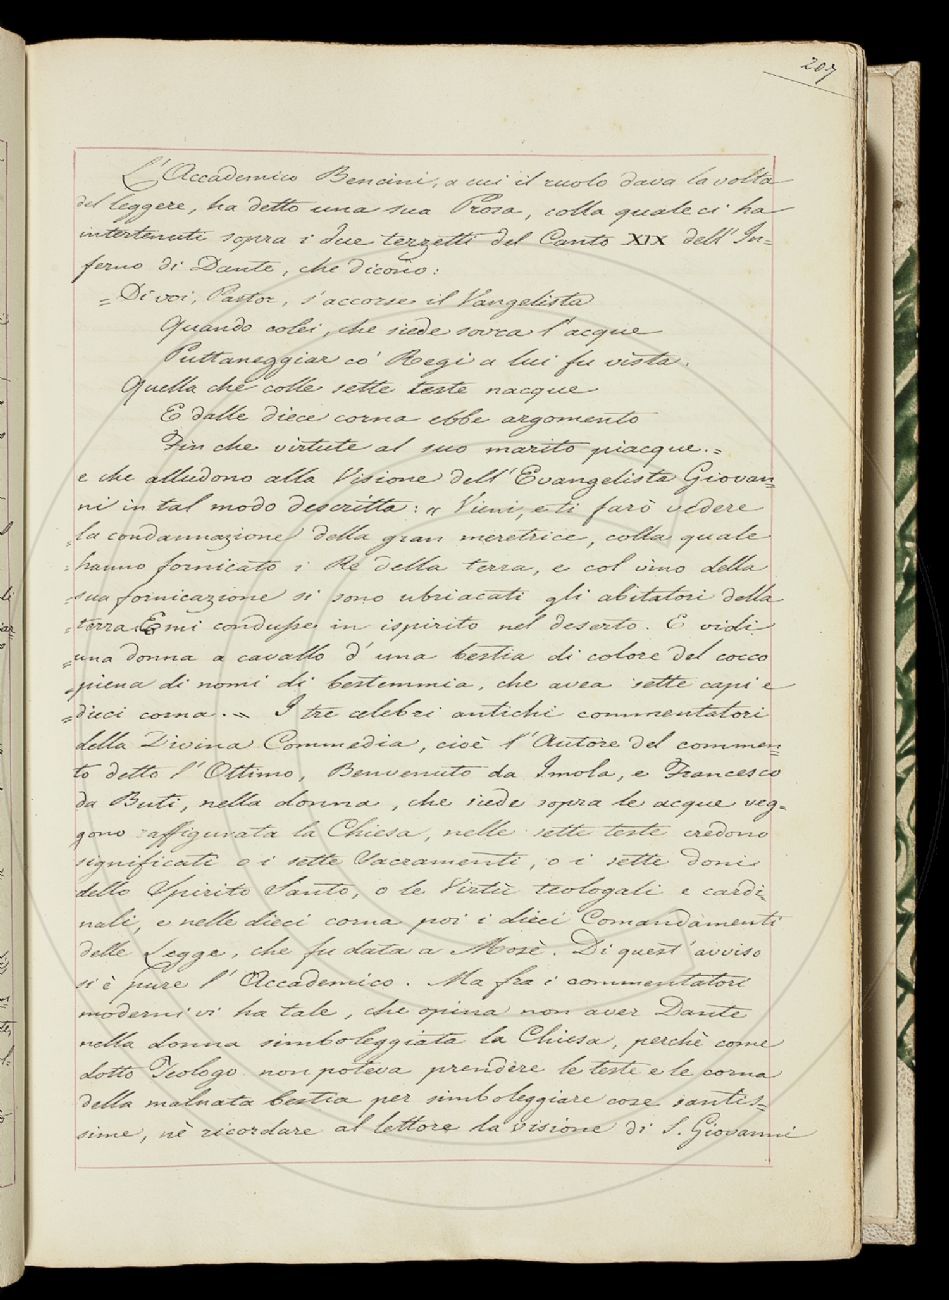 207
L'Accademico Bencini, a cui il ruolo dava la volta
del leggere, ha detto una sua Prosa, colla quale ci ha
intertenuti sopra i due terzetti del Canto XIX dell'In=
ferno di Dante, che dicono:
= Di voi, Pastor, s'accorse il Vangelista
Quando colei, che siede sovra l'acque
Puttaneggiar co' Regi a lui fu vista.
Quella che colle sette teste nacque
E dalle diece corna ebbe argomento
Fin che virtute al suo marito piacque. =
e che alludono alla Visione dell'Evangelista Giovan=
ni in tal modo descritta: « Vieni, e ti farò vedere
= la condannazione della gran meretrice, colla quale
= hanno fornicato i Re della terra, e col vino della
= sua fornicazione si sono ubriacati gli abitatori della
= terra. E mi condusse in ispirito nel deserto. E vidi
= una donna a cavallo d'una bestia di colore del cocco
= piena di nomi di bestemmia, che avea sette capi e
= dieci corna. = I tre celebri antichi commentatori
della Divina Commedia, cioè l'Autore del commen=
to detto l'Ottimo, Benvenuto da Imola, e Francesco
da Buti, nella donna, che siede sopra le acque veg=
gono raffigurata la Chiesa, nelle sette teste credono
significati o i sette Sacramenti, o i sette doni
dello Spirito Santo, o le Virtù teologali e cardi=
nali, e nelle dieci corna poi i dieci Comandamenti
della Legge, che fu data a Mosè. Di quest'avviso
si è pure l'Accademico. Ma fra i commentatori
moderni vi ha tale, che opina non aver Dante
nella donna simboleggiata la Chiesa, perchè come
dotto Teologo non poteva prendere le teste e le corna
della malnata bestia per simboleggiare cose santis=
sime, nè ricordare al lettore la visione di S. Giovanni